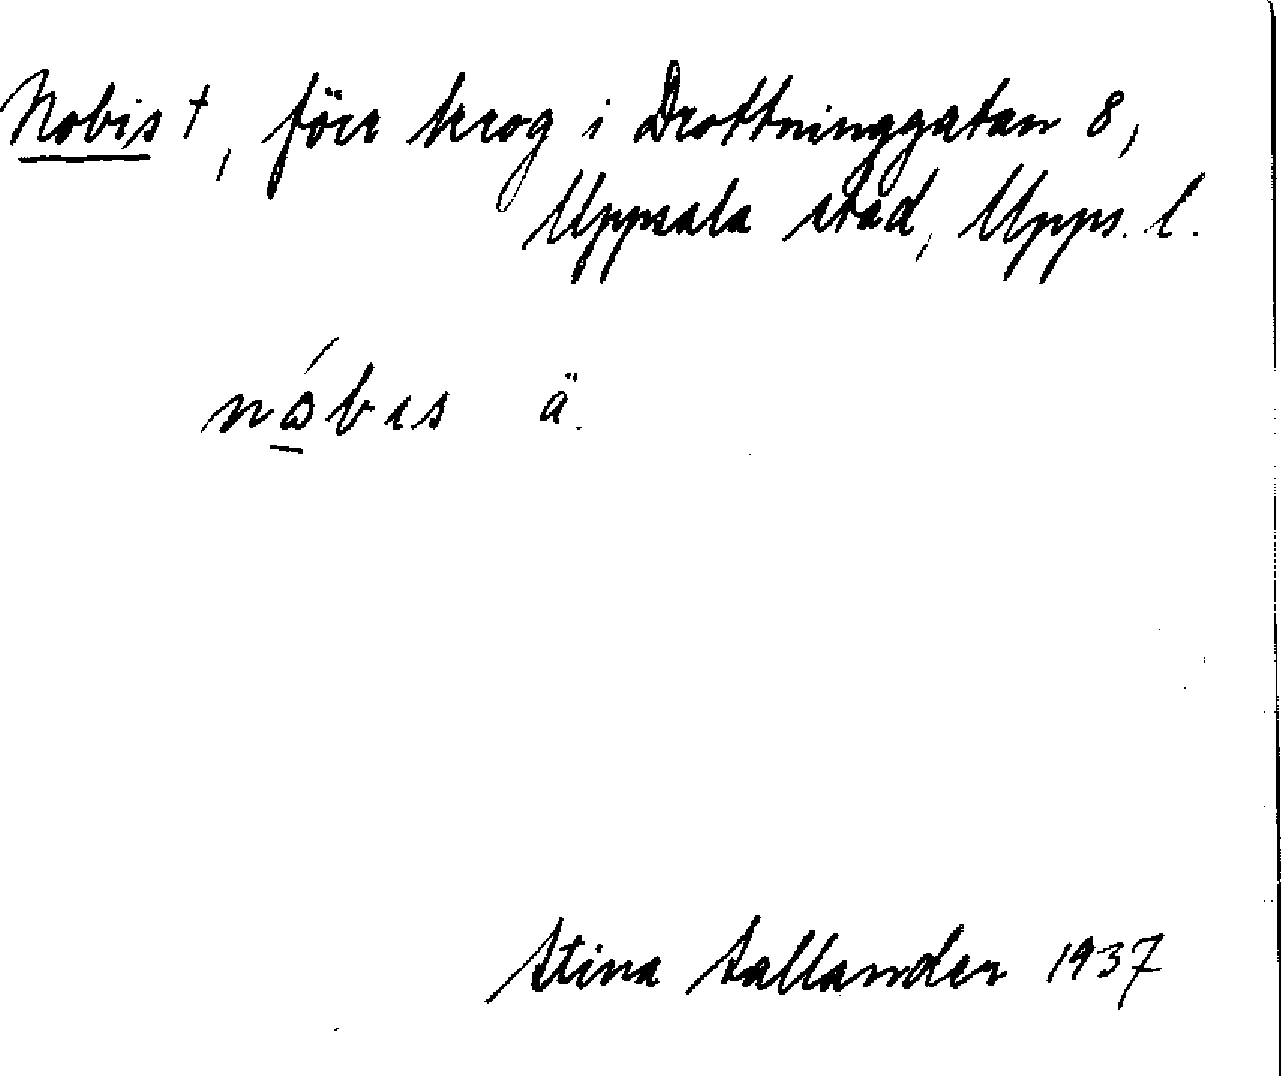 Nobis †, förr krog i Drottninggatan 8,
Uppsala stad, Upps. l.
nǻbɩs ä.
Stina Sallander 1937